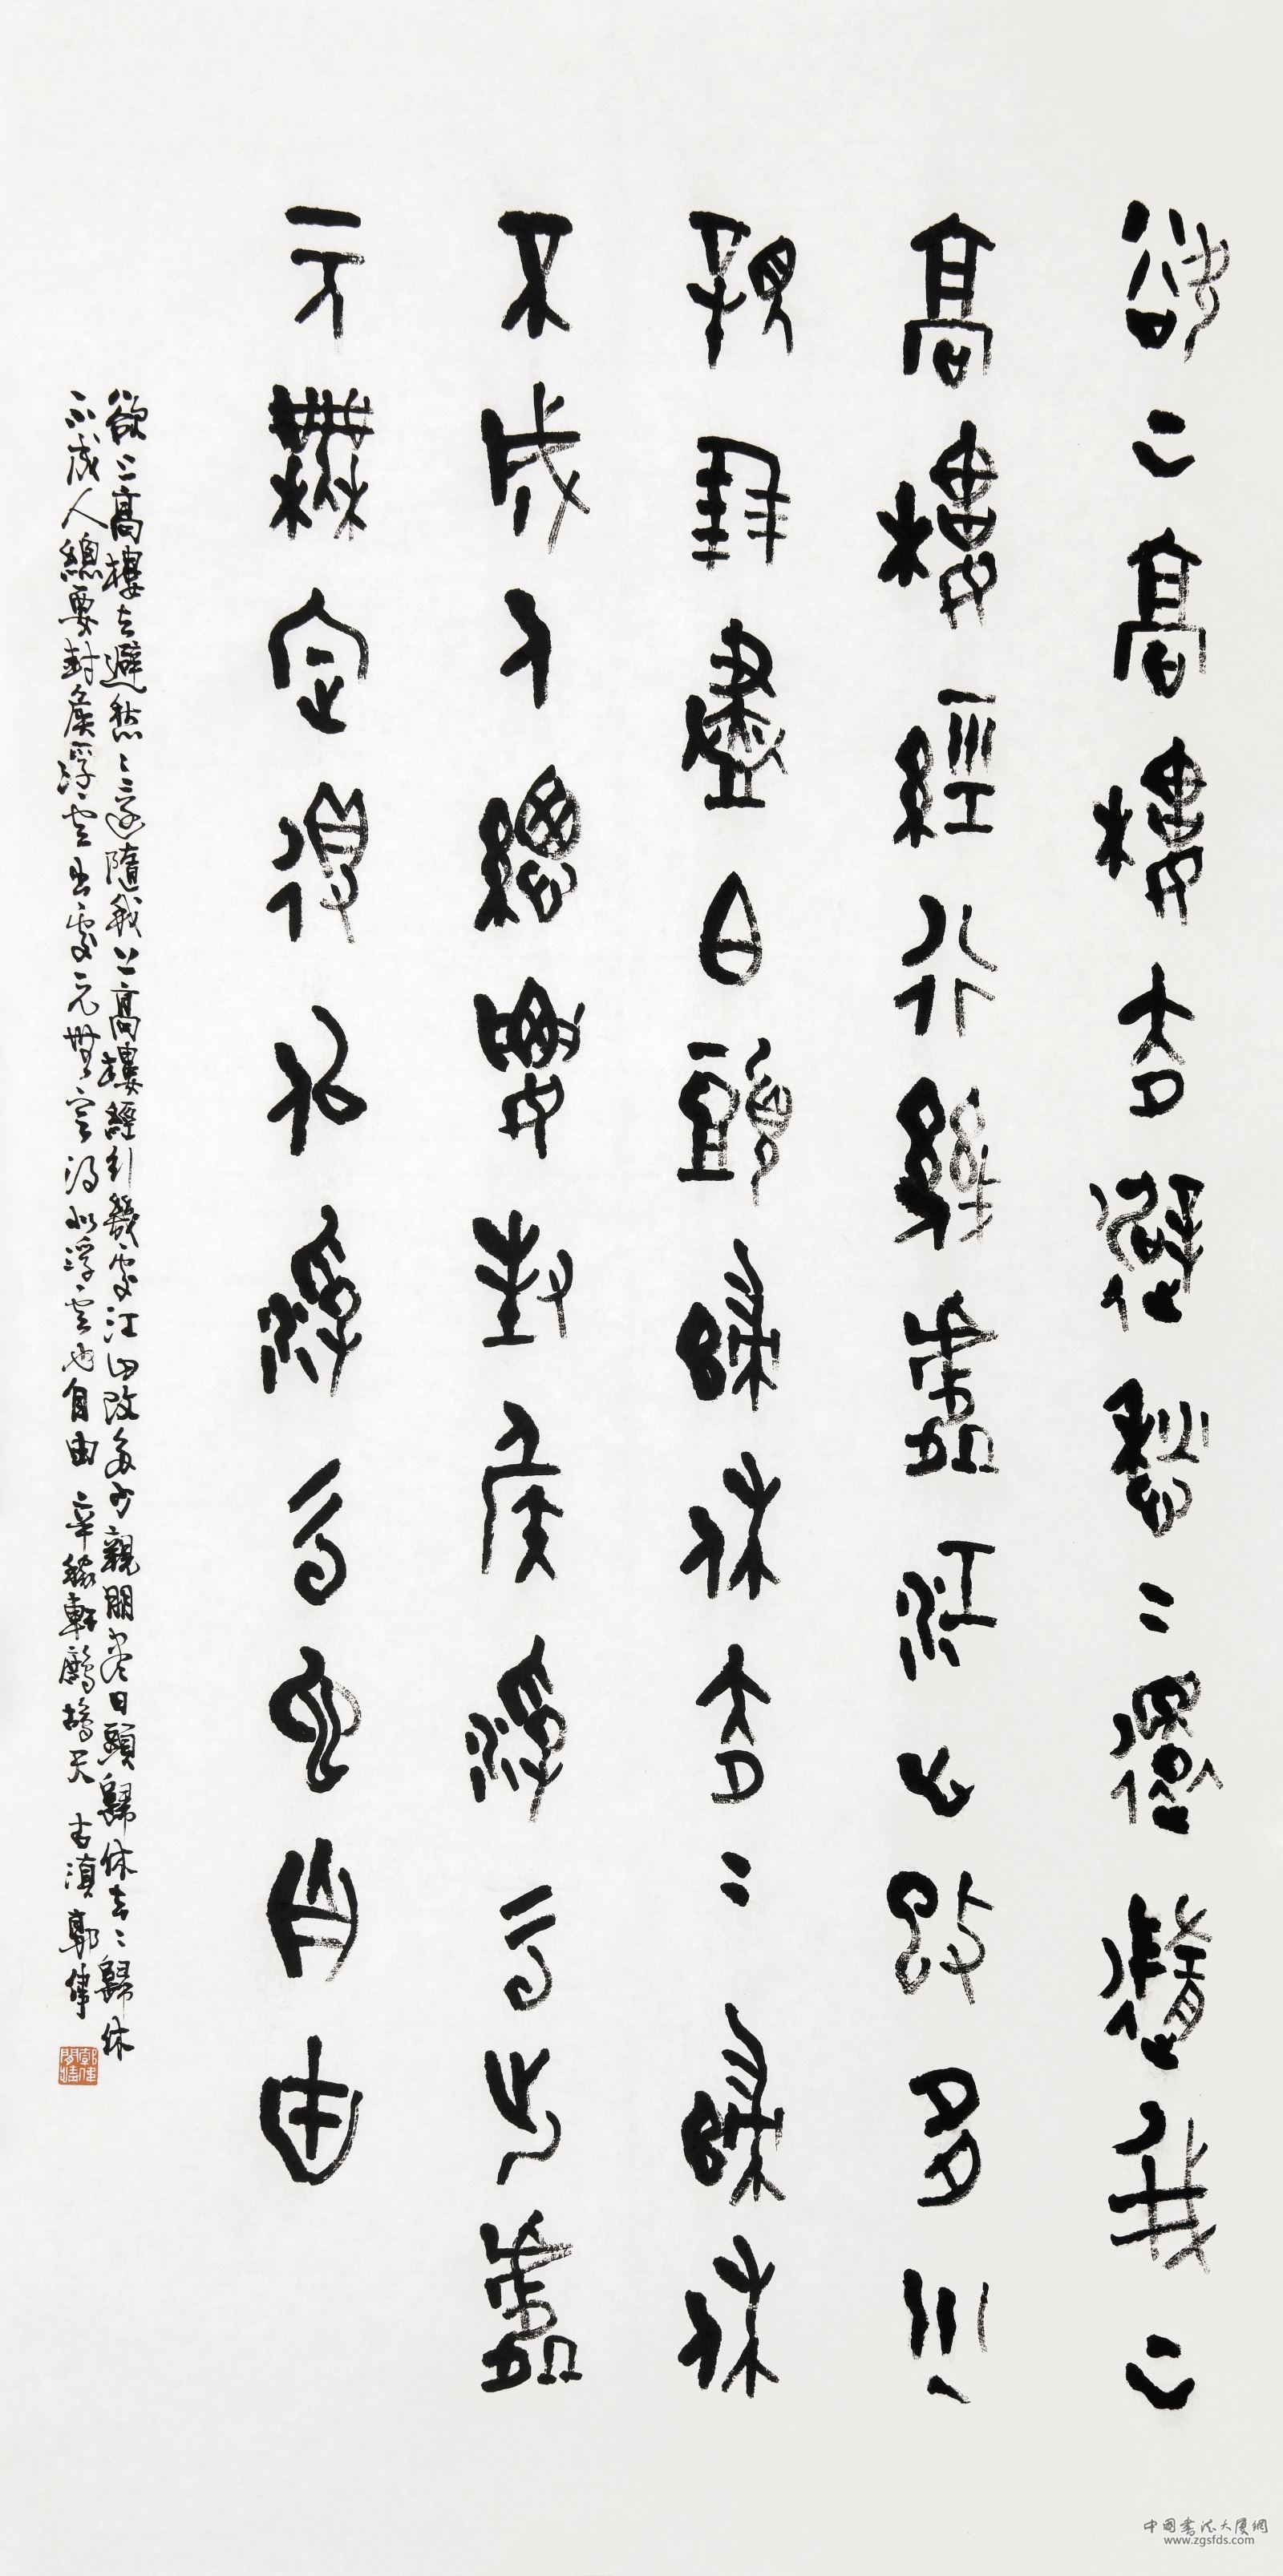 欲上高樓去避愁〻還隨我上
高樓經行幾處江山改多少
親朋盡白頭歸休去〻歸休
不成人總要封侯浮云出處
元無定得似浮云也自由
欲上高樓去避愁〻還隨我上高樓經行幾處江山改多少親朋盡白頭歸休去〻歸休
不成人總要封侯浮雲出處元無定得似浮雲也自由 辛稼軒鷓鴣天 古滇郭偉
中国书法大厦網
www.zgsfds.com